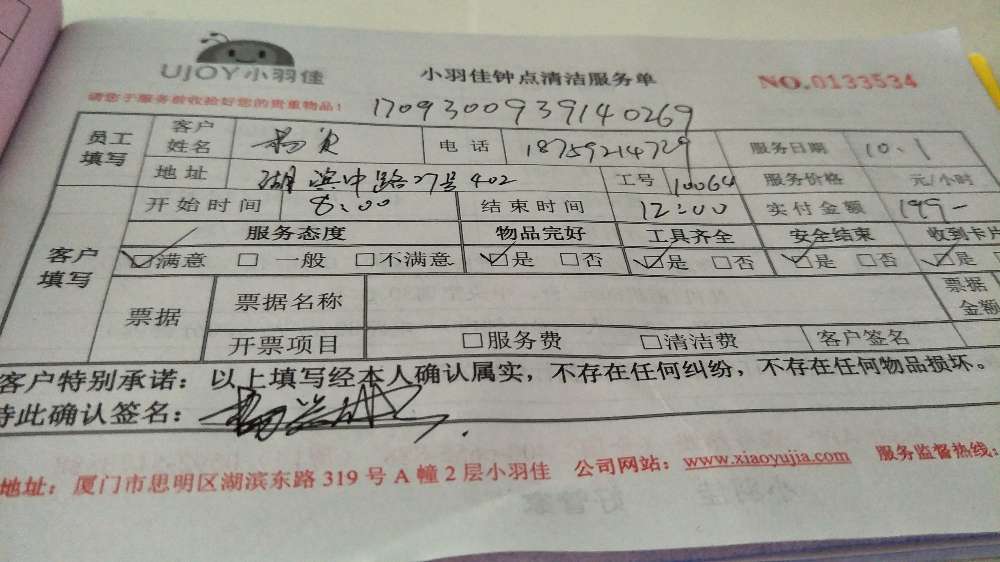 UJOY小羽佳 小羽佳钟点清洁服务单 NO.0133534
请您于服务前收捡好您的贵重物品! 1709300939140269
员工填写 客户姓名 杨 电话 18759214729 服务日期 10.1
地址 湖滨中路27号402 工号 10064 服务价格 元/小时
客户填写 开始时间 8:00 结束时间 12:00 实付金额 199-
服务态度 物品完好 工具齐全 安全结束 收到卡片
☑满意 □一般 □不满意 ☑是 □否 ☑是 □否 ☑是 □否 ☑是
票据 票据名称 票据金额
开票项目 □服务费 □清洁费 客户签名
客户特别承诺：以上填写经本人确认属实，不存在任何纠纷，不存在任何物品损坏。
特此确认签名：
地址：厦门市思明区湖滨东路319号A幢2层小羽佳 公司网站：www.xiaoyujia.com 服务监督热线：